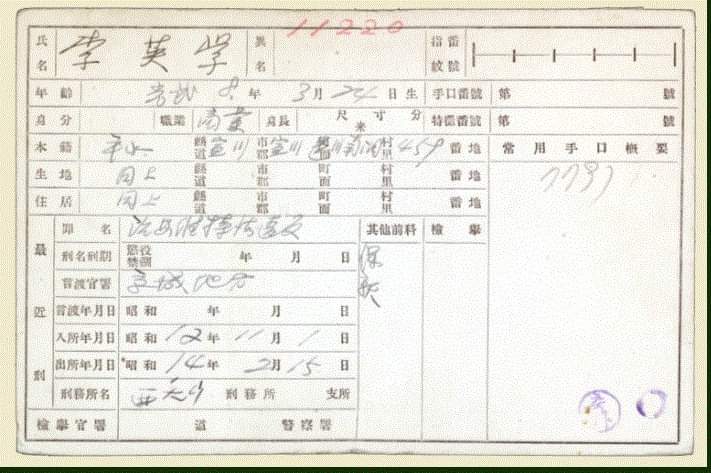 11220
氏名 李英学 異名 指紋番號
年齡 年 3月24日生 手口番號 第 號
身分 職業 商業 身長 尺寸分 米 特徵番號 第 號
本籍 平北 縣道 宣川 市郡 宣川 町面 村里 459 番地 常用手口概要
生地 同上 縣道 市郡 町面 村里 番地
住居 同上 縣道 市郡 町面 村里 番地
最近刑
罪名 治安維持法違反 其他前科 檢擧
刑名刑期 懲役 禁錮 年 月 日
言渡官署 京城地方
言渡年月日 昭和 年 月 日
入所年月日 昭和 12年 11月 1日
出所年月日 昭和 14年 2月 15日
刑務所名 西大門 刑務所 支所
檢擧官署 道 警察署